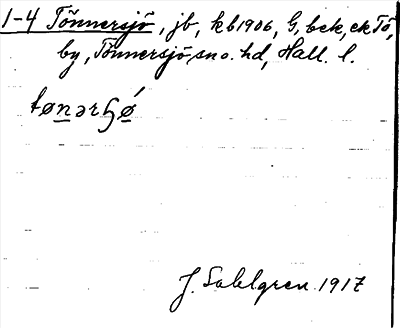 1-4 Tönnersjö, jb, kb1906, G, bek, ek Tö,
by, Tönnersjö sn o. hd, Hall. l.
tønərʖǿ
J. Sahlgren 1917